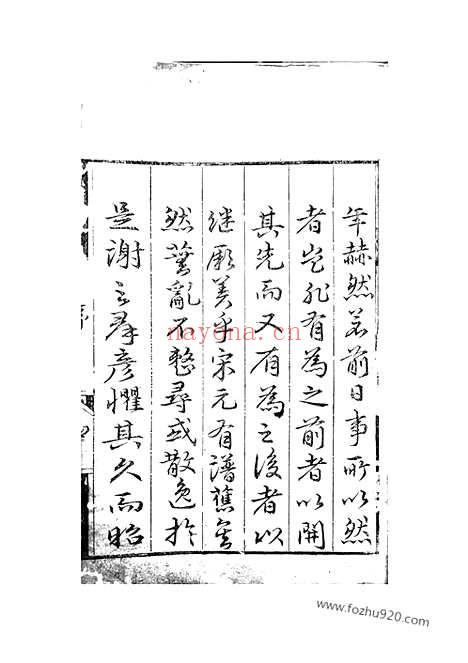 年赫然若前日事所以然
者豈非有為之前者以開
其先而又有為之後者以
继厥美乎宋元有譜舊矣
然蕪亂不整尋或散逸於
是謝之群彥懼其久而昭
序
nayona.cn
www.fozhu920.com